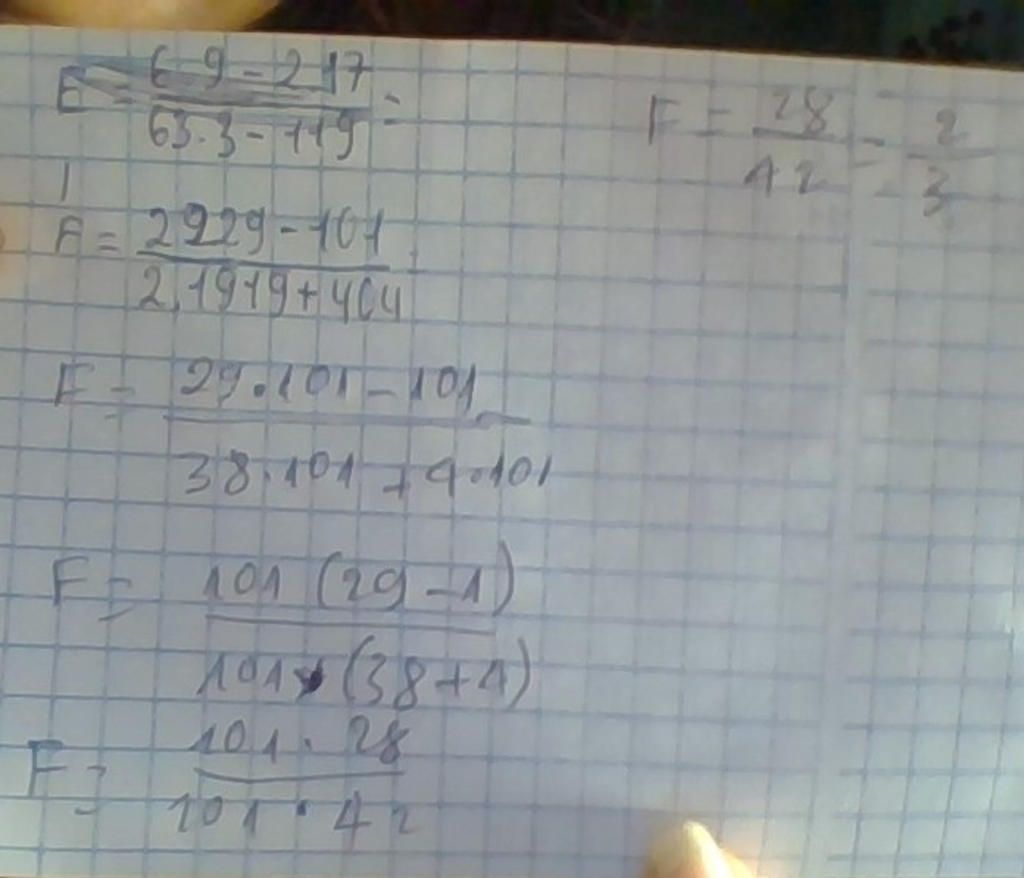 E = 6 9 - 2 17 / 63.3 - 119 =
A = 2929 - 101 / 2.1919 + 404
F = 29.101 - 101 / 38.101 + 4.101
F = 101 (29 - 1) / 101 (38 + 4)
F = 101 . 28 / 101 . 42
F = 28 / 42 = 2 / 3